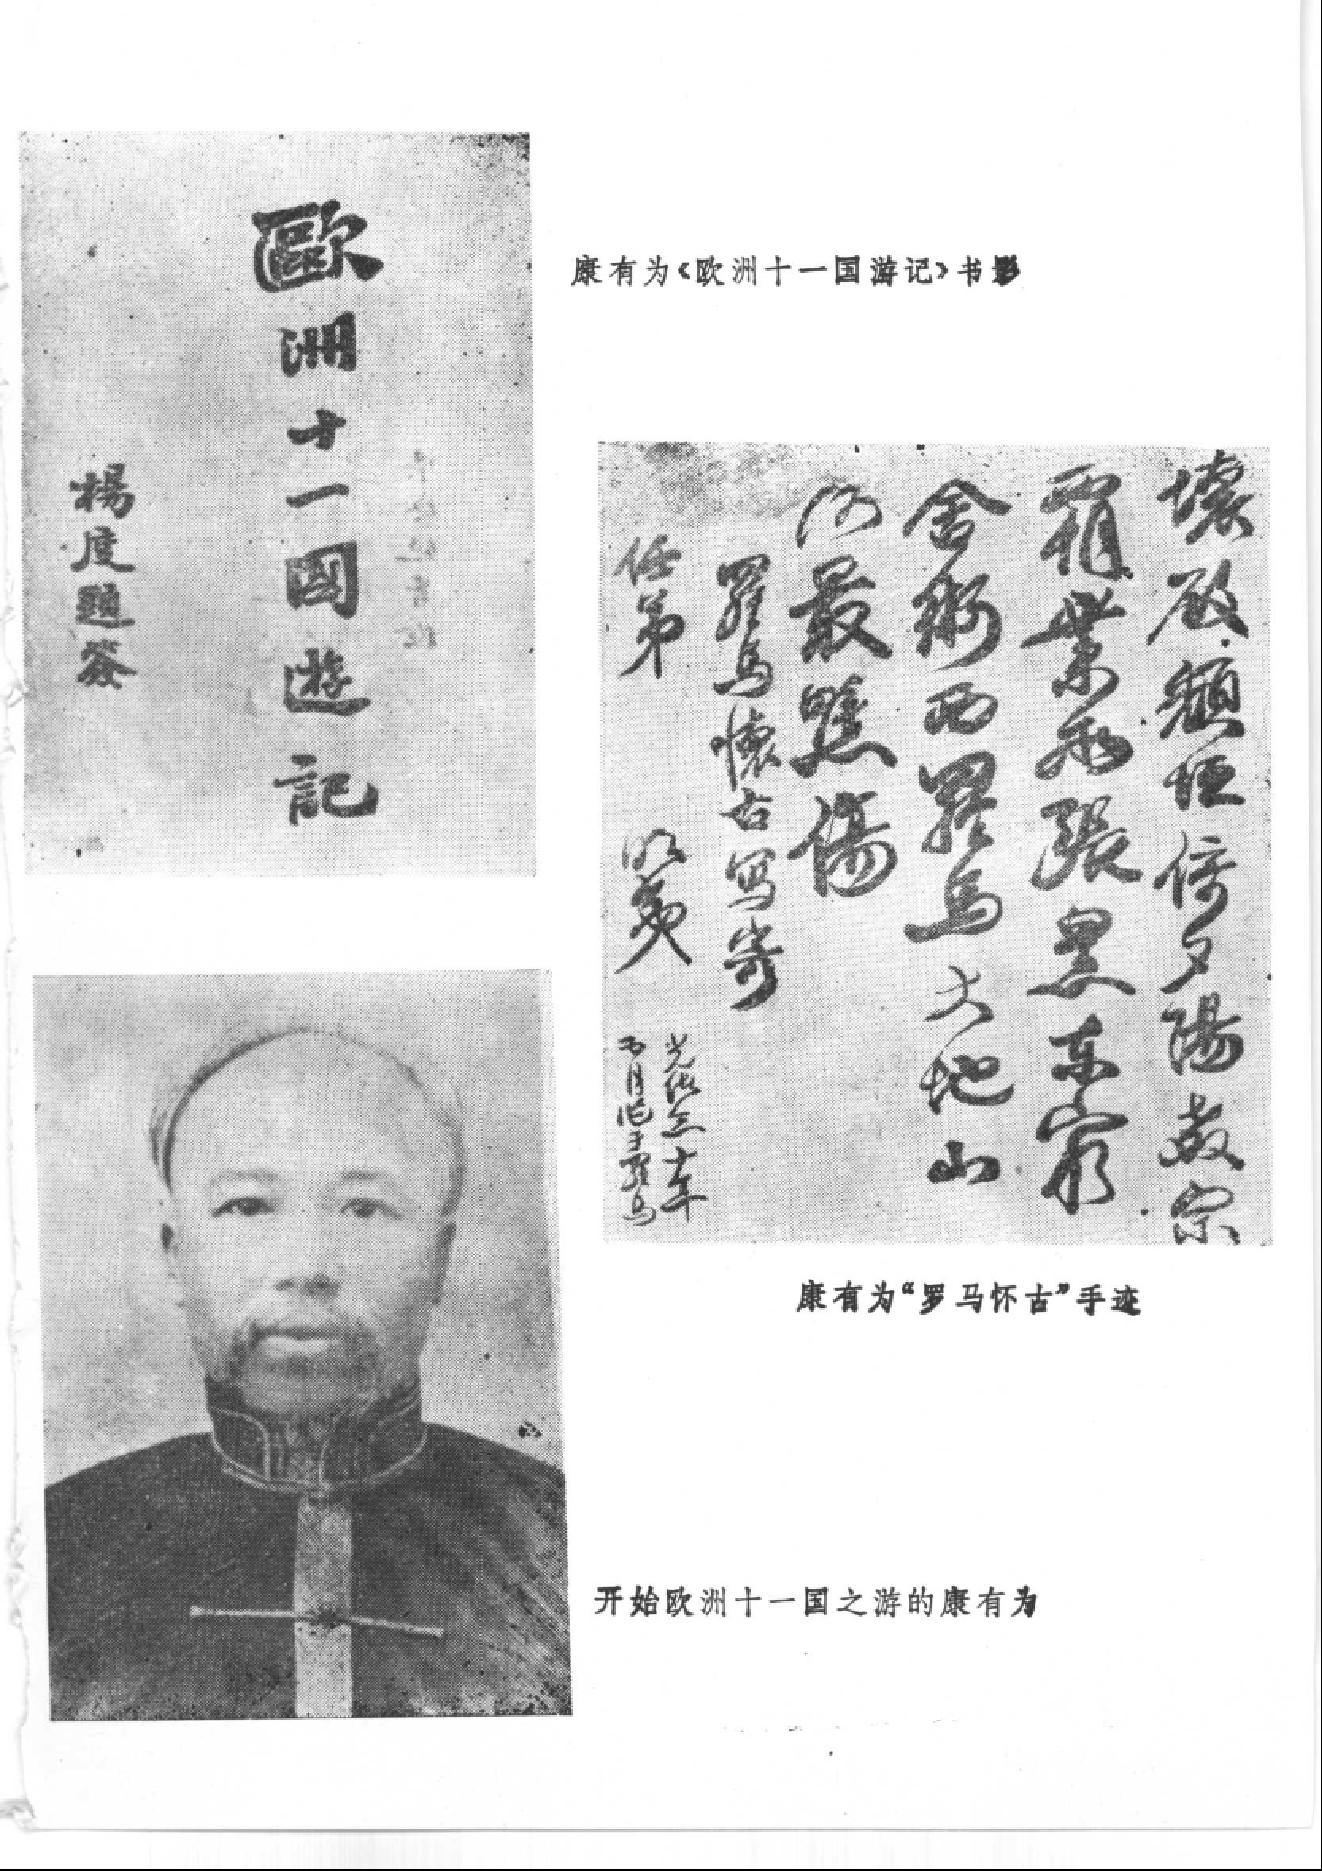 歐洲十一國遊記
楊度題簽
康有为《欧洲十一国游记》书影
壞殿頹垣倚夕陽教宗
霸業我張皇東窮
金狮西羅馬大地山
河最慘傷
羅馬懷古写寄
任弟
明夷
光緒三十年
五月作于羅馬
康有为“罗马怀古”手迹
开始欧洲十一国之游的康有为